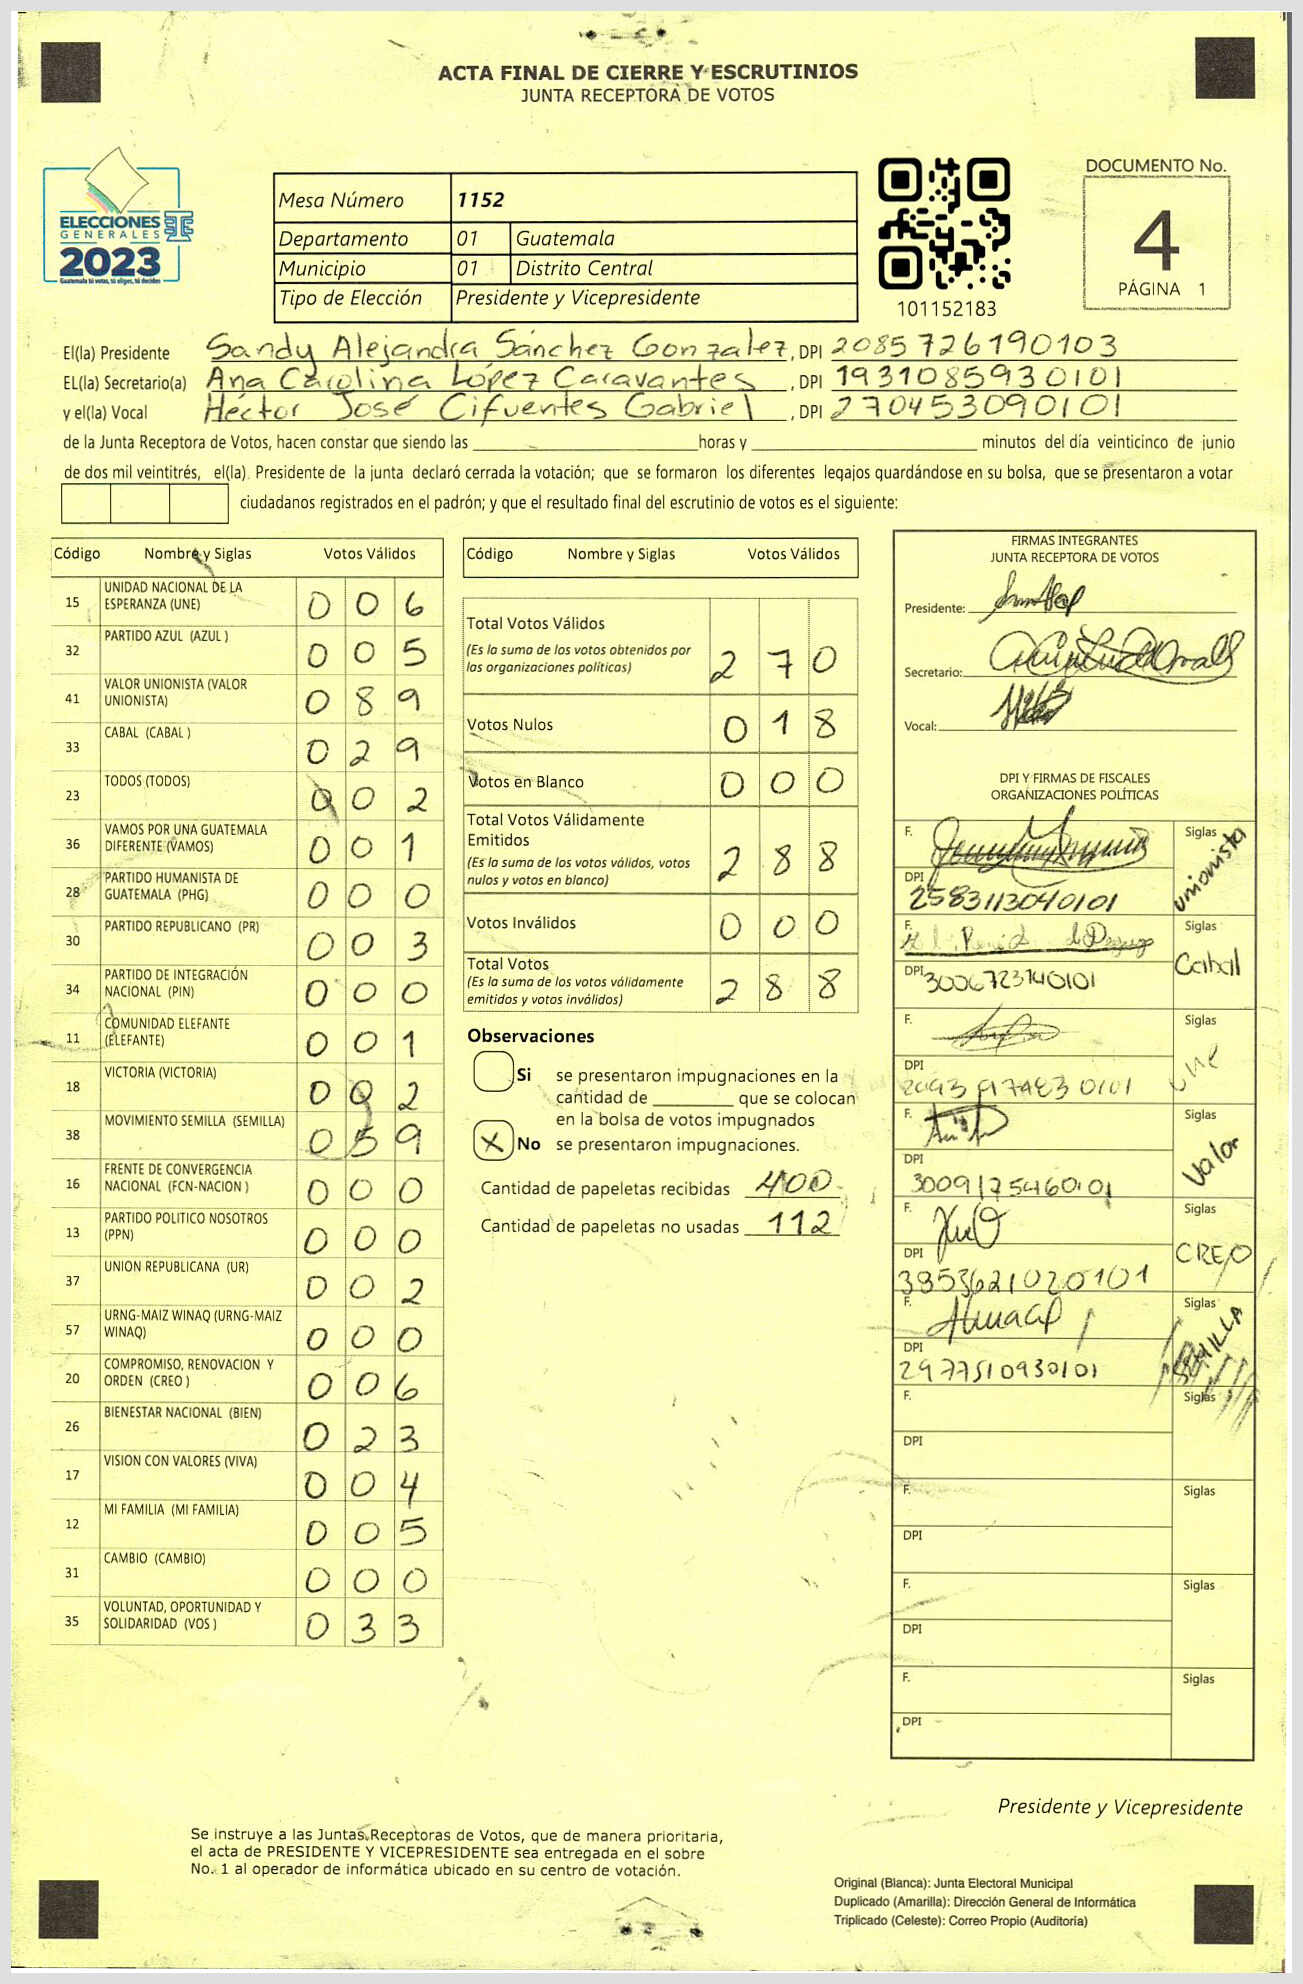 ACTA FINAL DE CIERRE Y ESCRUTINIOS
JUNTA RECEPTORA DE VOTOS
ELECCIONES
GENERALES
2023
Guatemala tú votas, tú eliges, tú decides
Mesa Número 1152
Departamento 01 Guatemala
Municipio 01 Distrito Central
Tipo de Elección Presidente y Vicepresidente
101152183
DOCUMENTO No.
4
PÁGINA 1
El(la) Presidente Sandy Alejandra Sánchez Gonzalez, DPI 2085726190103
EL(la) Secretario(a) Ana Carolina López Caravantes, DPI 1931085930101
y el(la) Vocal Héctor José Cifuentes Gabriel, DPI 270453090101
de la Junta Receptora de Votos, hacen constar que siendo las horas y minutos del día veinticinco de junio
de dos mil veintitrés, el(la). Presidente de la junta declaró cerrada la votación; que se formaron los diferentes legajos guardándose en su bolsa, que se presentaron a votar
ciudadanos registrados en el padrón; y que el resultado final del escrutinio de votos es el siguiente:
Código Nombre y Siglas Votos Válidos
15 UNIDAD NACIONAL DE LA ESPERANZA (UNE) 0 0 6
32 PARTIDO AZUL (AZUL ) 0 0 5
41 VALOR UNIONISTA (VALOR UNIONISTA) 0 8 9
33 CABAL (CABAL ) 0 2 9
23 TODOS (TODOS) 0 0 2
36 VAMOS POR UNA GUATEMALA DIFERENTE (VAMOS) 0 0 1
28 PARTIDO HUMANISTA DE GUATEMALA (PHG) 0 0 0
30 PARTIDO REPUBLICANO (PR) 0 0 3
34 PARTIDO DE INTEGRACIÓN NACIONAL (PIN) 0 0 0
11 COMUNIDAD ELEFANTE (ELEFANTE) 0 0 1
18 VICTORIA (VICTORIA) 0 0 2
38 MOVIMIENTO SEMILLA (SEMILLA) 0 5 9
16 FRENTE DE CONVERGENCIA NACIONAL (FCN-NACION ) 0 0 0
13 PARTIDO POLITICO NOSOTROS (PPN) 0 0 0
37 UNION REPUBLICANA (UR) 0 0 2
57 URNG-MAIZ WINAQ (URNG-MAIZ WINAQ) 0 0 0
20 COMPROMISO, RENOVACION Y ORDEN (CREO ) 0 0 6
26 BIENESTAR NACIONAL (BIEN) 0 2 3
17 VISION CON VALORES (VIVA) 0 0 4
12 MI FAMILIA (MI FAMILIA) 0 0 5
31 CAMBIO (CAMBIO) 0 0 0
35 VOLUNTAD, OPORTUNIDAD Y SOLIDARIDAD (VOS ) 0 3 3
Código Nombre y Siglas Votos Válidos
Total Votos Válidos 2 7 0
(Es la suma de los votos obtenidos por
las organizaciones políticas)
Votos Nulos 0 1 8
Votos en Blanco 0 0 0
Total Votos Válidamente
Emitidos 2 8 8
(Es la suma de los votos válidos, votos
nulos y votos en blanco)
Votos Inválidos 0 0 0
Total Votos 2 8 8
(Es la suma de los votos válidamente
emitidos y votos inválidos)
Observaciones
Si se presentaron impugnaciones en la
cantidad de que se colocan
en la bolsa de votos impugnados
X No se presentaron impugnaciones.
Cantidad de papeletas recibidas 400
Cantidad de papeletas no usadas 112
FIRMAS INTEGRANTES
JUNTA RECEPTORA DE VOTOS
Presidente:
Secretario:
Vocal:
DPI Y FIRMAS DE FISCALES
ORGANIZACIONES POLÍTICAS
F. Siglas unionista
DPI 2583113040101
F. Siglas Cabal
DPI 3006723140101
F. Siglas une
DPI
F. Siglas Valor
DPI 3009175460101
F. Siglas CREO
DPI 3353621020101
F. Siglas SEMILLA
DPI 2977510930101
F. Siglas
DPI
F. Siglas
DPI
F. Siglas
DPI
F. Siglas
DPI
Presidente y Vicepresidente
Se instruye a las Juntas Receptoras de Votos, que de manera prioritaria,
el acta de PRESIDENTE Y VICEPRESIDENTE sea entregada en el sobre
No. 1 al operador de informática ubicado en su centro de votación.
Original (Blanca): Junta Electoral Municipal
Duplicado (Amarilla): Dirección General de Informática
Triplicado (Celeste): Correo Propio (Auditoría)